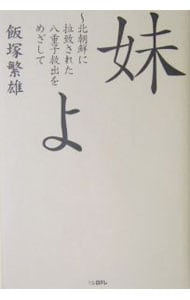 妹よ
~北朝鮮に
拉致された
八重子救出を
めざして
飯塚繁雄
日テレ